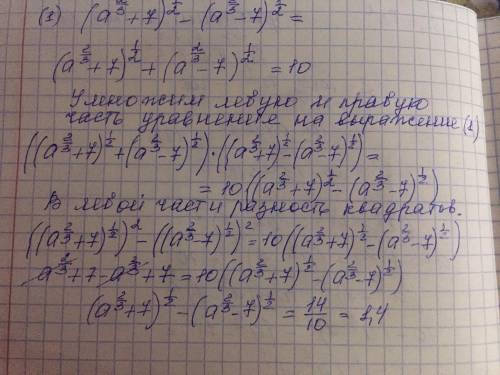 (1) (a^(2/3)+7)^(1/2) - (a^(2/3)-7)^(1/2) =
(a^(2/3)+7)^(1/2) + (a^(2/3)-7)^(1/2) = 10
Умножим левую и правую
часть уравнения на выражение (1)
((a^(2/3)+7)^(1/2) + (a^(2/3)-7)^(1/2)) · ((a^(2/3)+7)^(1/2) - (a^(2/3)-7)^(1/2)) =
= 10((a^(2/3)+7)^(1/2) - (a^(2/3)-7)^(1/2))
В левой части разность квадратов.
((a^(2/3)+7)^(1/2))^2 - ((a^(2/3)-7)^(1/2))^2 = 10((a^(2/3)+7)^(1/2) - (a^(2/3)-7)^(1/2))
a^(2/3) + 7 - a^(2/3) + 7 = 10((a^(2/3)+7)^(1/2) - (a^(2/3)-7)^(1/2))
(a^(2/3)+7)^(1/2) - (a^(2/3)-7)^(1/2) = 14/10 = 1,4